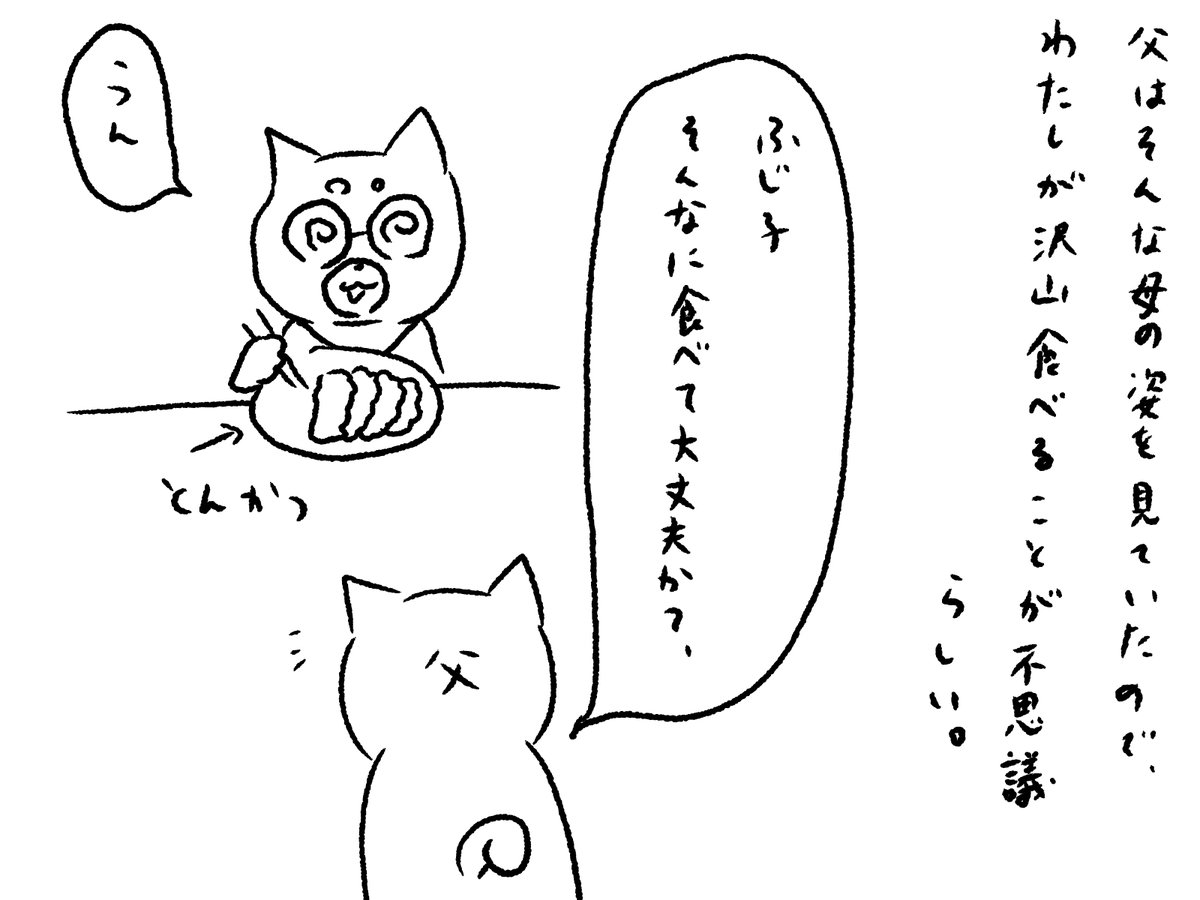 父はそんな母の姿を見ていたので、
わたしが沢山食べることが不思議
らしい。
ふじ子
そんなに食べて大丈夫か?、
うん
とんかつ
父